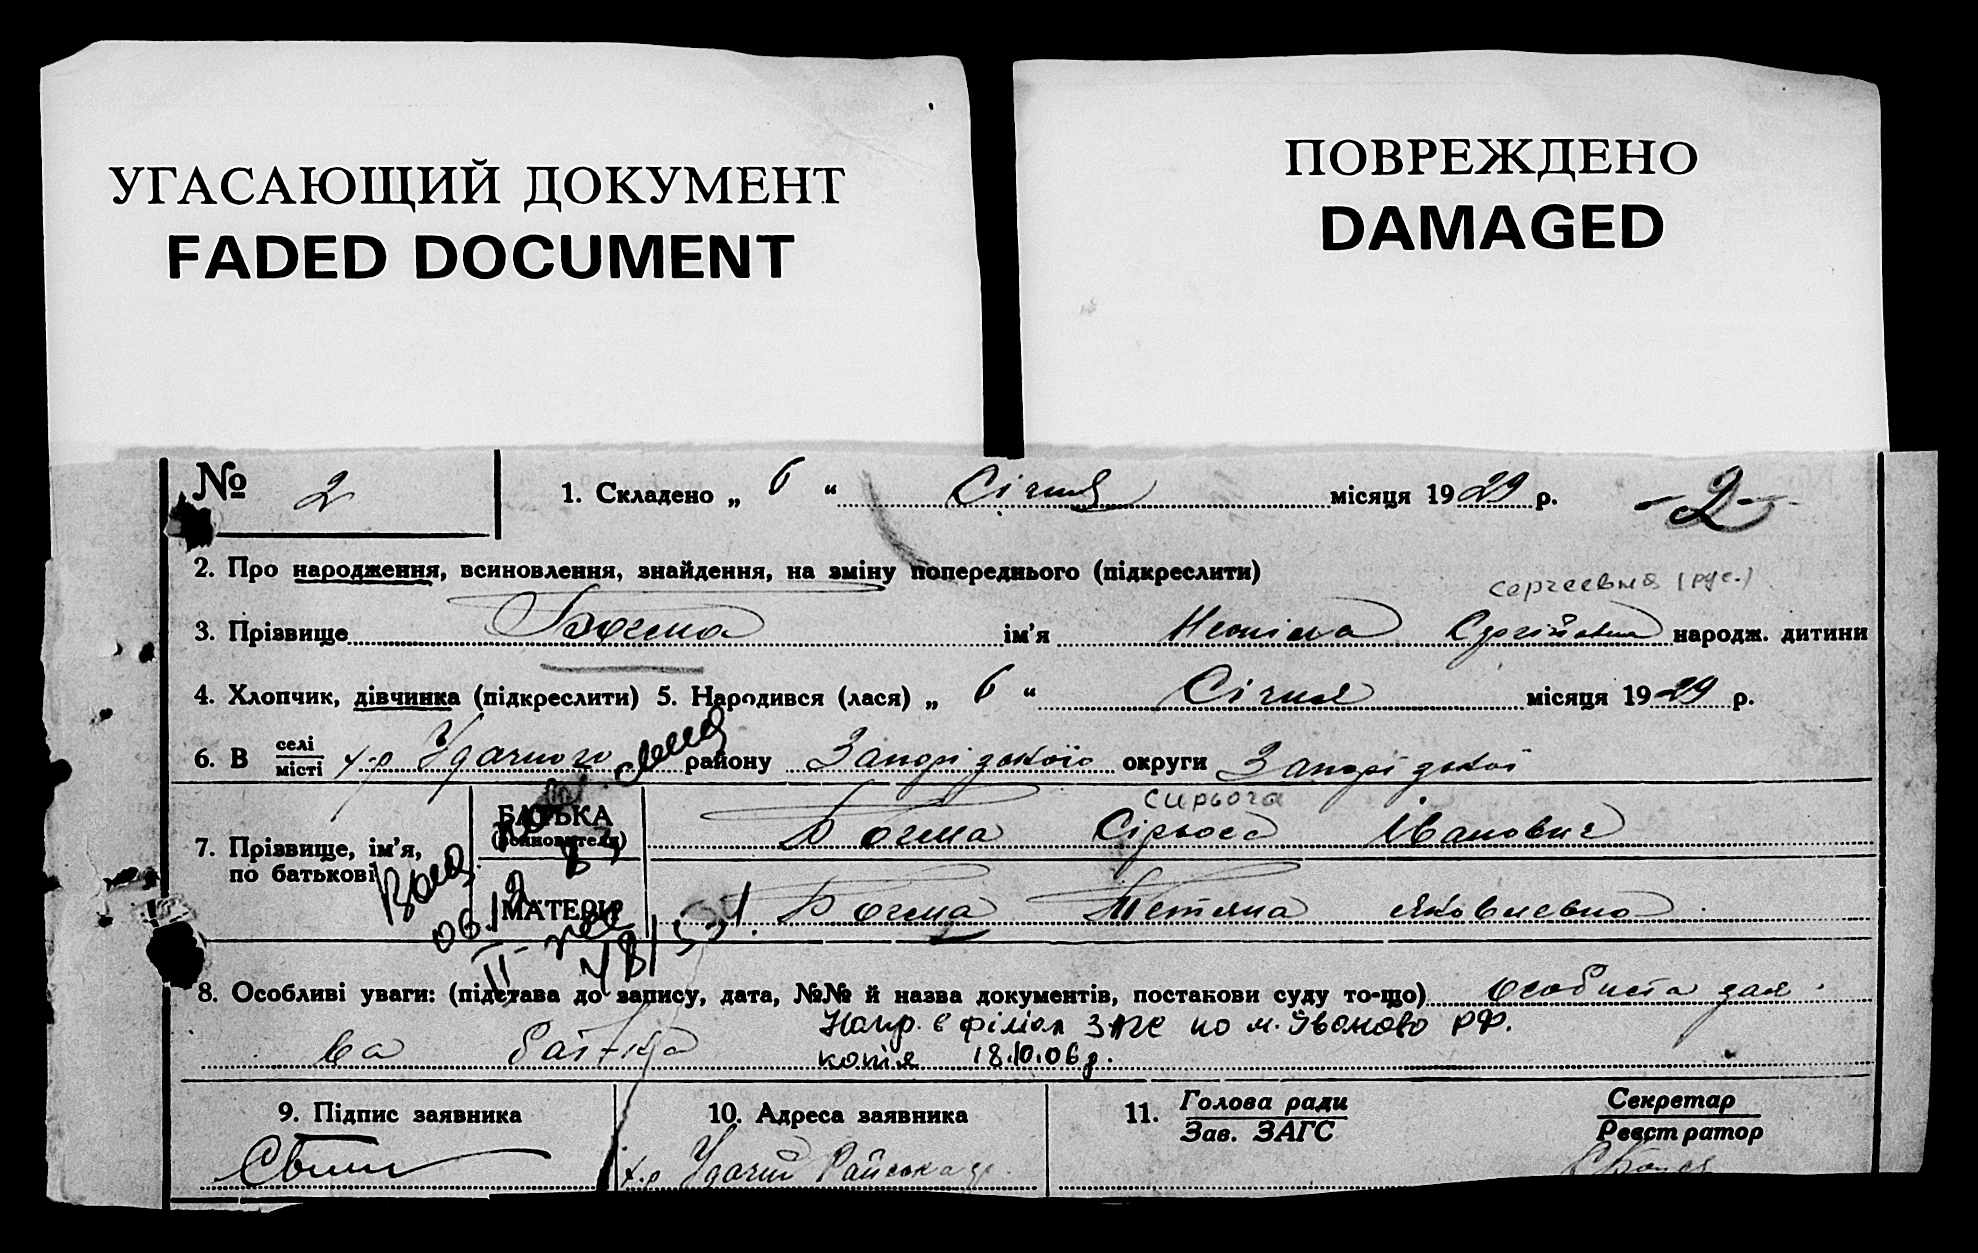 УГАСАЮЩИЙ ДОКУМЕНТ
FADED DOCUMENT
ПОВРЕЖДЕНО
DAMAGED
№ 2
1. Складено „ 6 “ Січня місяця 1929 р.
-2-
2. Про народження, всиновлення, знайдення, на зміну попереднього (підкреслити)
сергеевна (рус.)
3. Прізвище Богма ім’я Неоніла Сергіївна народж. дитини
4. Хлопчик, дівчинка (підкреслити) 5. Народився (лася) „ 6 “ Січня місяця 1929 р.
6. В селі місті х-р Удачного району Запорізького округи Запорізької
7. Прізвище, ім’я, по батькові
БАТЬКА
(всиновителя)
сирьога
Богма Сірьога Іванович
МАТЕРИ
Богма Тетяна Яковлевна
8. Особливі уваги: (підстава до запису, дата, №№ й назва документів, постанови суду то-що) особиста зая
ва батька
Напр. в філіал ЗАГС по м. Іваново РФ.
копія 18.10.06р.
9. Підпис заявника
10. Адреса заявника
х-р Удачний
11. Голова ради
Зав. ЗАГС
Секретар
Реєстратор